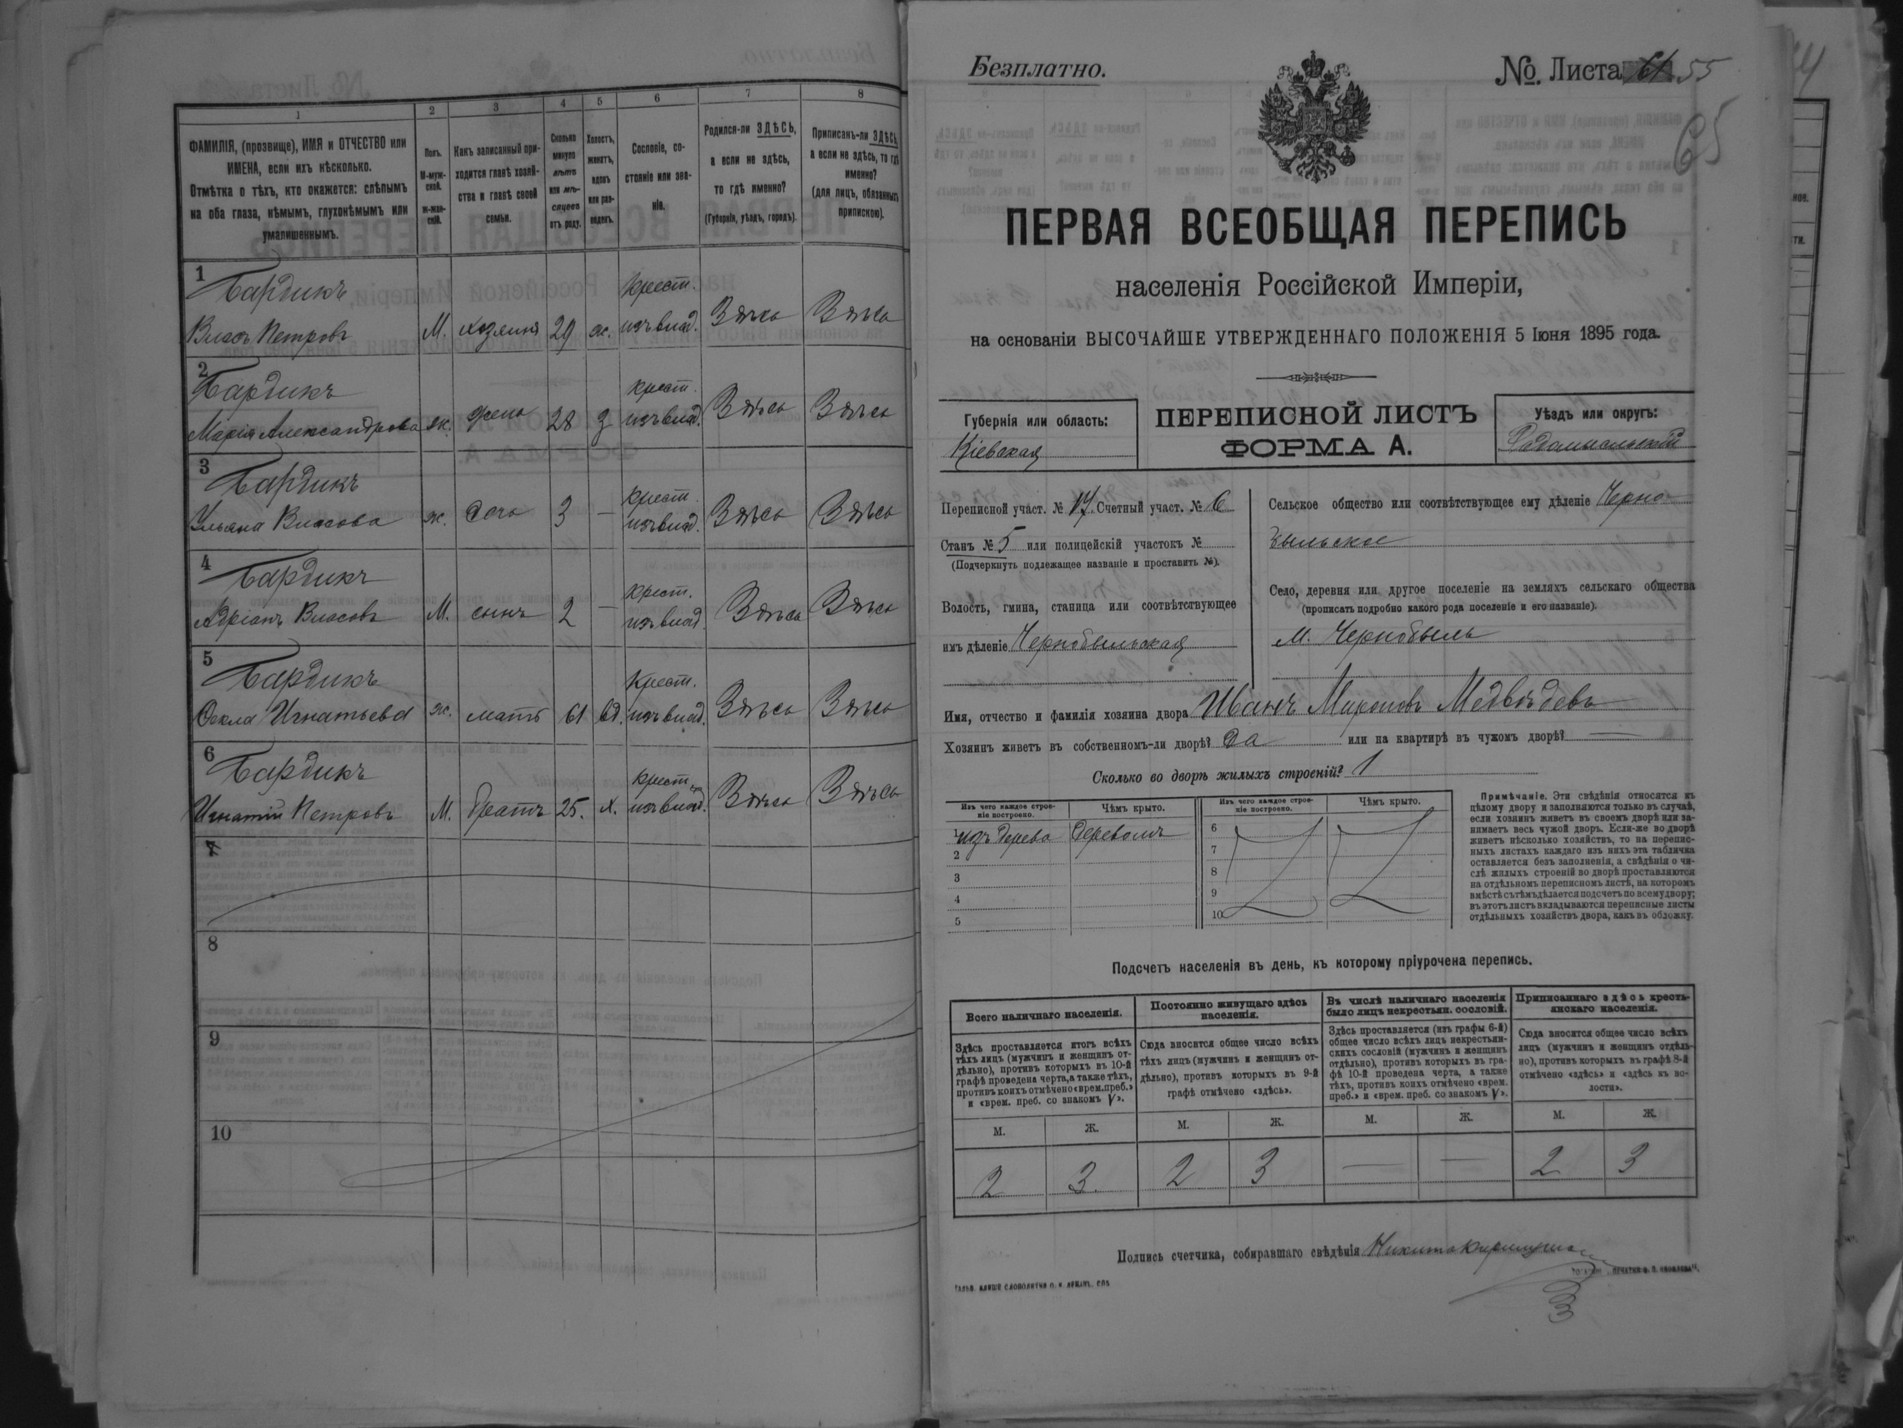 1
2
3
4
5
6
7
8
ФАМИЛІЯ, (прозвище), ИМЯ и ОТЧЕСТВО или
ИМЕНА, если ихъ нѣсколько.
Отмѣтка о тѣхъ, кто окажется: слѣпымъ
на оба глаза, нѣмымъ, глухонѣмымъ или
умалишеннымъ.
Полъ.
М-муж-
ской.
Ж-жен-
скій.
Какъ записанный при-
ходится главѣ хозяй-
ства и главѣ своей
семьи.
Сколько
минуло
лѣтъ
или мѣ-
сяцевъ
отъ роду.
Холостъ,
женатъ,
вдовъ
или раз-
веденъ.
Сословіе, со-
стояніе или зва-
ніе.
Родился-ли ЗДѢСЬ,
а если не здѣсь,
то гдѣ именно?
(Губернія, уѣздъ, городъ).
Приписанъ-ли ЗДѢСЬ,
а если не здѣсь, то гдѣ
именно?
(для лицъ, обязанныхъ
припискою).
1
Бардикъ
Власъ Петровъ М. хозяинъ 29 ж. Крест. изъ влад. Здѣсь Здѣсь
2
Бардикъ
Марія Александрова ж. жена 28 з крест. изъ влад. Здѣсь Здѣсь
3
Бардикъ
Ульяна Власова ж. дочь 3 — крест. изъ влад. Здѣсь Здѣсь
4
Бардикъ
Адріанъ Власовъ М. сынъ 2 — крест. изъ влад. Здѣсь Здѣсь
5
Бардикъ
Фекла Игнатьева ж. мать 61 вд. Крест. изъ влад. Здѣсь Здѣсь
6
Бардикъ
Игнатій Петровъ М. братъ 25. х. крест. изъ влад. Здѣсь Здѣсь
7
8
9
10
Безплатно.
№. Листа 61 55
65
ПЕРВАЯ ВСЕОБЩАЯ ПЕРЕПИСЬ
населенія Россійской Имперіи,
на основаніи ВЫСОЧАЙШЕ УТВЕРЖДЕННАГО ПОЛОЖЕНІЯ 5 Іюня 1895 года.
Губернія или область:
Кіевская
ПЕРЕПИСНОЙ ЛИСТЪ
ФОРМА А.
Уѣздъ или округъ:
Радомысльскій
Переписной участ. № 17. Счетный участ. № 6
Станъ № 5 или полицейскій участокъ №
(Подчеркнуть подлежащее названіе и проставить №).
Волость, гмина, станица или соотвѣтствующее
имъ дѣленіе Чернобыльская
Сельское общество или соотвѣтствующее ему дѣленіе Черно-
быльское
Село, деревня или другое поселеніе на земляхъ сельскаго общества
(прописать подробно какого рода поселеніе и его названіе).
м. Чернобыль
Имя, отчество и фамилія хозяина двора Иванъ Мироновъ Медвѣдевъ
Хозяинъ живетъ въ собственномъ-ли дворѣ? Да или на квартирѣ въ чужомъ дворѣ? —
Сколько во дворѣ жилыхъ строеній? 1
Изъ чего каждое строе-
ніе построено.
Чѣмъ крыто.
Изъ чего каждое строе-
ніе построено.
Чѣмъ крыто.
1 изъ дерева Деревомъ
2
3
4
5
6
7
8
9
10
Примѣчаніе. Эти свѣдѣнія относятся къ
цѣлому двору и заполняются только въ случаѣ,
если хозяинъ живетъ въ своемъ дворѣ или за-
нимаетъ весь чужой дворъ. Если-же во дворѣ
живетъ нѣсколько хозяйствъ, то на перепис-
ныхъ листахъ каждаго изъ нихъ эта табличка
оставляется безъ заполненія, а свѣдѣнія о чи-
слѣ жилыхъ строеній во дворѣ проставляются
на отдѣльномъ переписномъ листѣ, на которомъ
вмѣстѣ съ тѣмъ дѣлается подсчетъ по всему двору;
въ этотъ листъ вкладываются переписные листы
отдѣльныхъ хозяйствъ двора, какъ въ обложку.
Подсчетъ населенія въ день, къ которому пріурочена перепись.
Всего наличнаго населенія.
Здѣсь проставляется итогъ всѣхъ
тѣхъ лицъ (мужчинъ и женщинъ от-
дѣльно), противъ которыхъ въ 10-й
графѣ проведена черта, а также тѣхъ,
противъ коихъ отмѣчено «врем. преб.»
и «врем. преб. со знакомъ V».
Постоянно живущаго здѣсь
населенія.
Сюда вносится общее число всѣхъ
тѣхъ лицъ (мужчинъ и женщинъ от-
дѣльно), противъ которыхъ въ 9-й
графѣ отмѣчено «здѣсь».
Въ числѣ наличнаго населенія
было лицъ некрестьян. сословій.
Здѣсь проставляется (изъ графы 6-й)
общее число всѣхъ лицъ некрестьян-
скихъ сословій (мужчинъ и женщинъ
отдѣльно), противъ которыхъ въ гра-
фѣ 10-й проведена черта, а также
тѣхъ, противъ коихъ отмѣчено «врем.
преб.» и «врем. преб. со знакомъ V».
Приписаннаго здѣсь кресть-
янскаго населенія.
Сюда вносится общее число всѣхъ
лицъ (мужчинъ и женщинъ отдѣль-
но), противъ которыхъ въ графѣ 8-й
отмѣчено «здѣсь» и «здѣсь въ во-
лости».
М. Ж. М. Ж. М. Ж. М. Ж.
2 3. 2 3 — — 2 3
Подпись счетчика, собиравшаго свѣдѣнія Никита